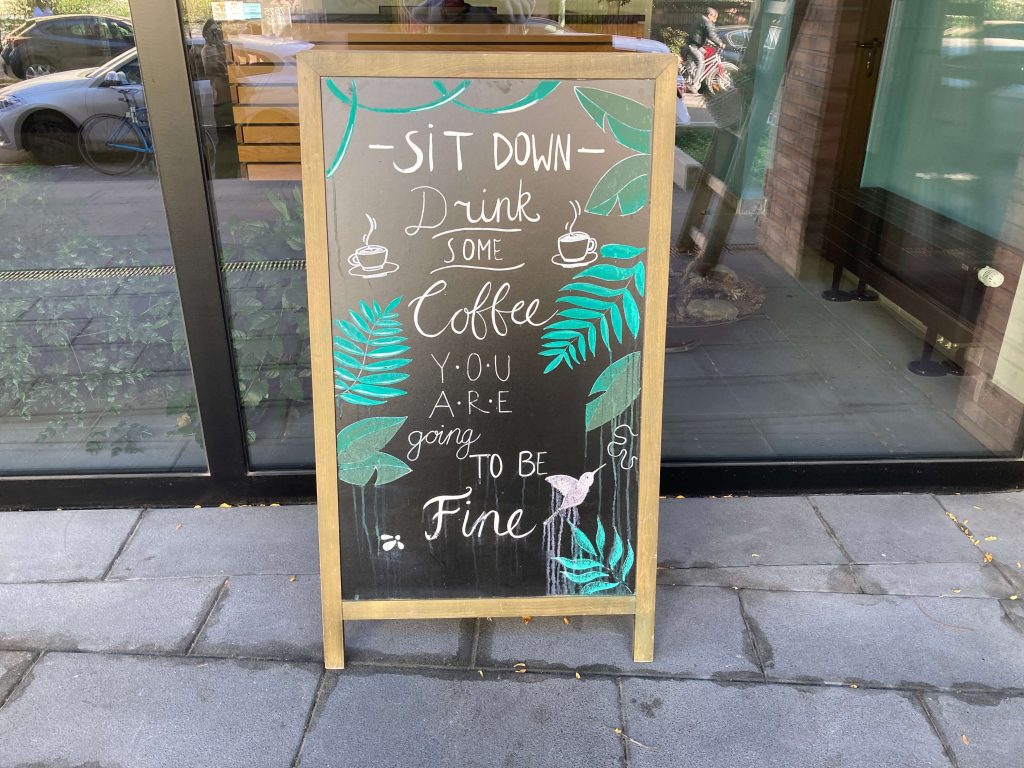 -SiT DOWN-
Drink
SOME
Coffee
Y·O·U
A·R·E
going
TO BE
Fine